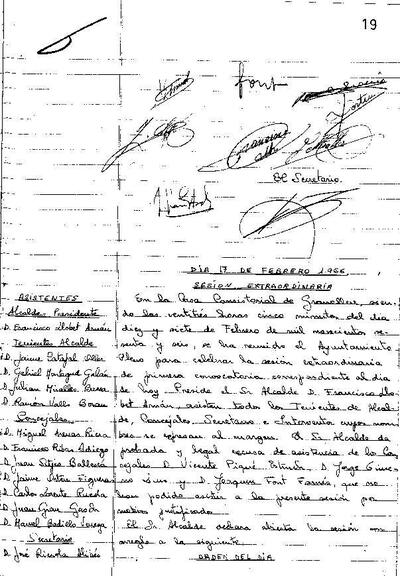 19
font
El Secretario.
DÍA 17 DE FEBRERO 1.966
SESION EXTRAORDINARIA
ASISTENTES
Alcalde Presidente
D. Francisco Llobet Arnán
Tenientes Alcalde
D. Jaime
D. Gabriel
D. Julian
D. Ramón Valls
Concejales
D. Miguel Arenas Riera
D. Francisco Ribas
D. Juan Sitjes
D. Jaime
D. Carlos Lorente Rueda
D. Juan Grau
D. Manuel Badillo
Secretario
D. José
En la Casa Consistorial de Granollers, siendo
las ventitrés horas cinco minutos del día
diez y siete de Febrero de mil novecientos se-
senta y seis, se ha reunido el Ayuntamiento
Pleno para celebrar la sesión extraordinaria
de primera convocatoria correspondiente al dia
de hoy. Preside el Sr. Alcalde D. Francisco Llo-
bet Arnán, asisten todos los Tenientes de Alcal-
de, Concejales, Secretario e Interventor cuyos nom-
bres se expresan al margen. El Sr. Alcalde da
probada y legal excusa de asistencia de los Con-
cejales D. Vicente Piqué D. Jorge
y D. Joaquim Font que no
han podido asistir a la presente sesión por
motivos justificados.
El Sr. Alcalde declara abierta la sesión con
arreglo a la siguiente
ORDEN DEL DIA